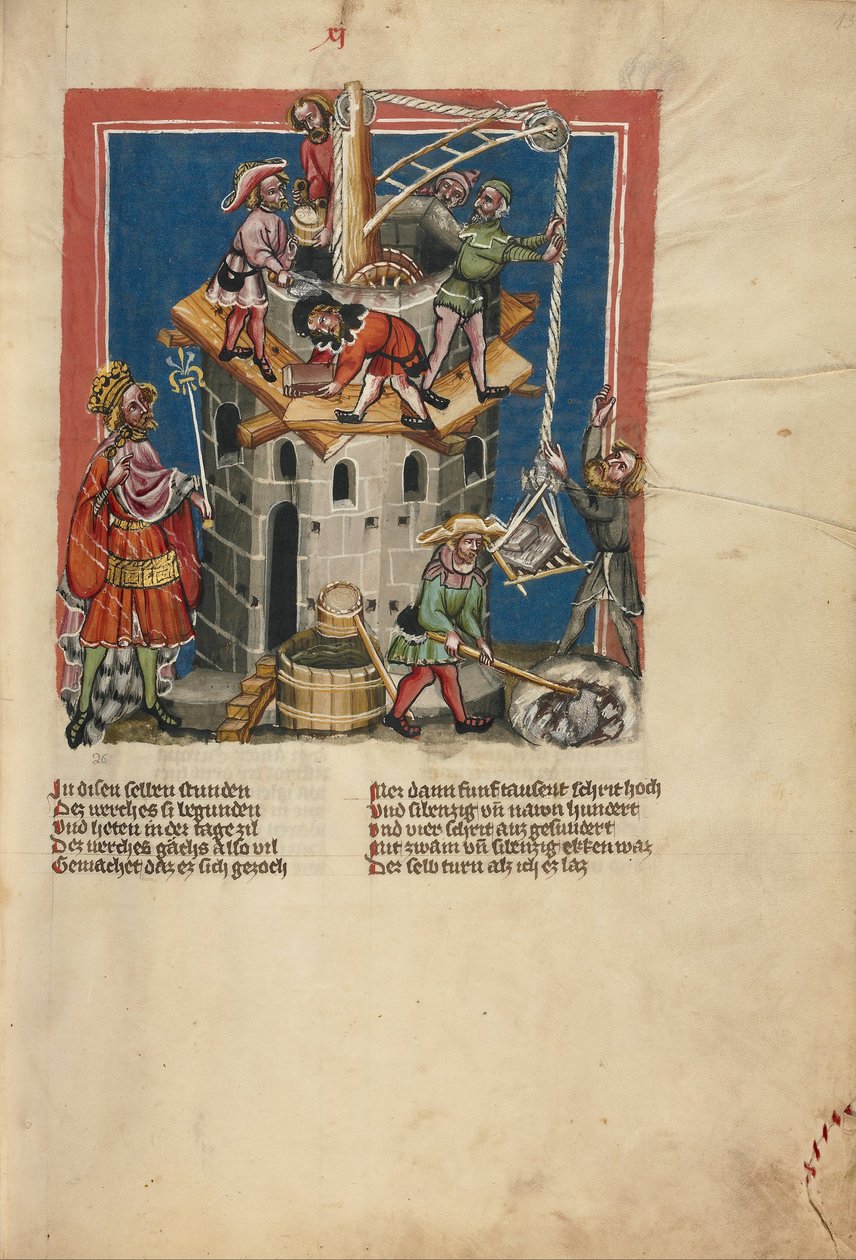 xj
13
26
In disen selben stunden
Dez werches si begunden
Vnd heten in der tage zil
Dez werches gåchs also vil
Gemachet daz ez sich gezoch
Mer dann funf tausent schrit hoch
Vnd sibenzig vn̄ nawn hundert
vnd vier schrit auz gesundert
Mit zwain vn̄ sibenzig ekken waz
Der selb turn alz ich ez laz